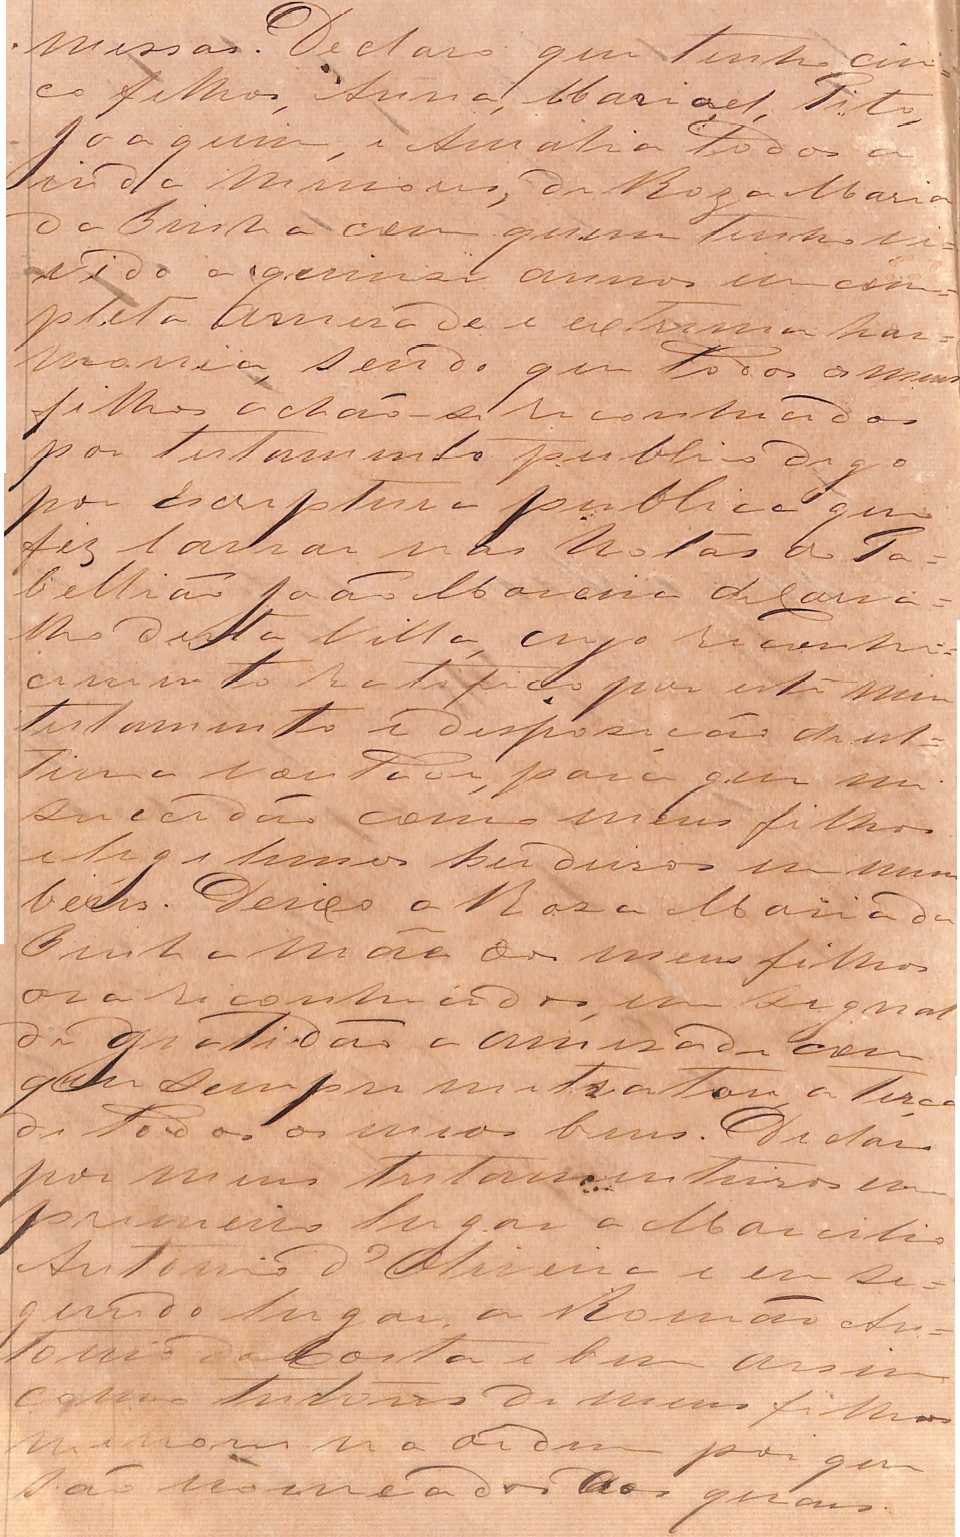 missas. Declaro que tenho cin=
co filhos, Anna, Manoel, Tito,
Joaquim, e Amalia todos a
inda menores, de Roza Maria
da Cunha com quem tenho vi=
vido a quinze annos em com=
pleta amizade e extrema har=
monia, sendo que todos os meus
filhos achão-se reconhecidos
por testamento publico digo
por escriptura publica que
fiz lavrar nas Notas do Ta=
bellião João Moreira de Carva=
lho desta Villa, cujo reconhe=
cimento ratifico por este meu
testamento e disposição de ul=
tima vontade, para que me
sucedão como meus filhos
e legitimos herdeiros em meus
bens. Deixo a Roza Maria da
Cunha mãe dos meus filhos
ora reconhecidos, em signal
de gratidão a amizade com
que sempre me tratou, a terça
de todos os meos bens. Declaro
por meus testamenteiros em
primeiro lugar a Marcilio
Antonio d'Oliveira e em se=
gundo lugar, a Romão An=
tonio da Costa e bem assim
como tutores de meus filhos
menores na ordem por que
são nomeados aos quaes